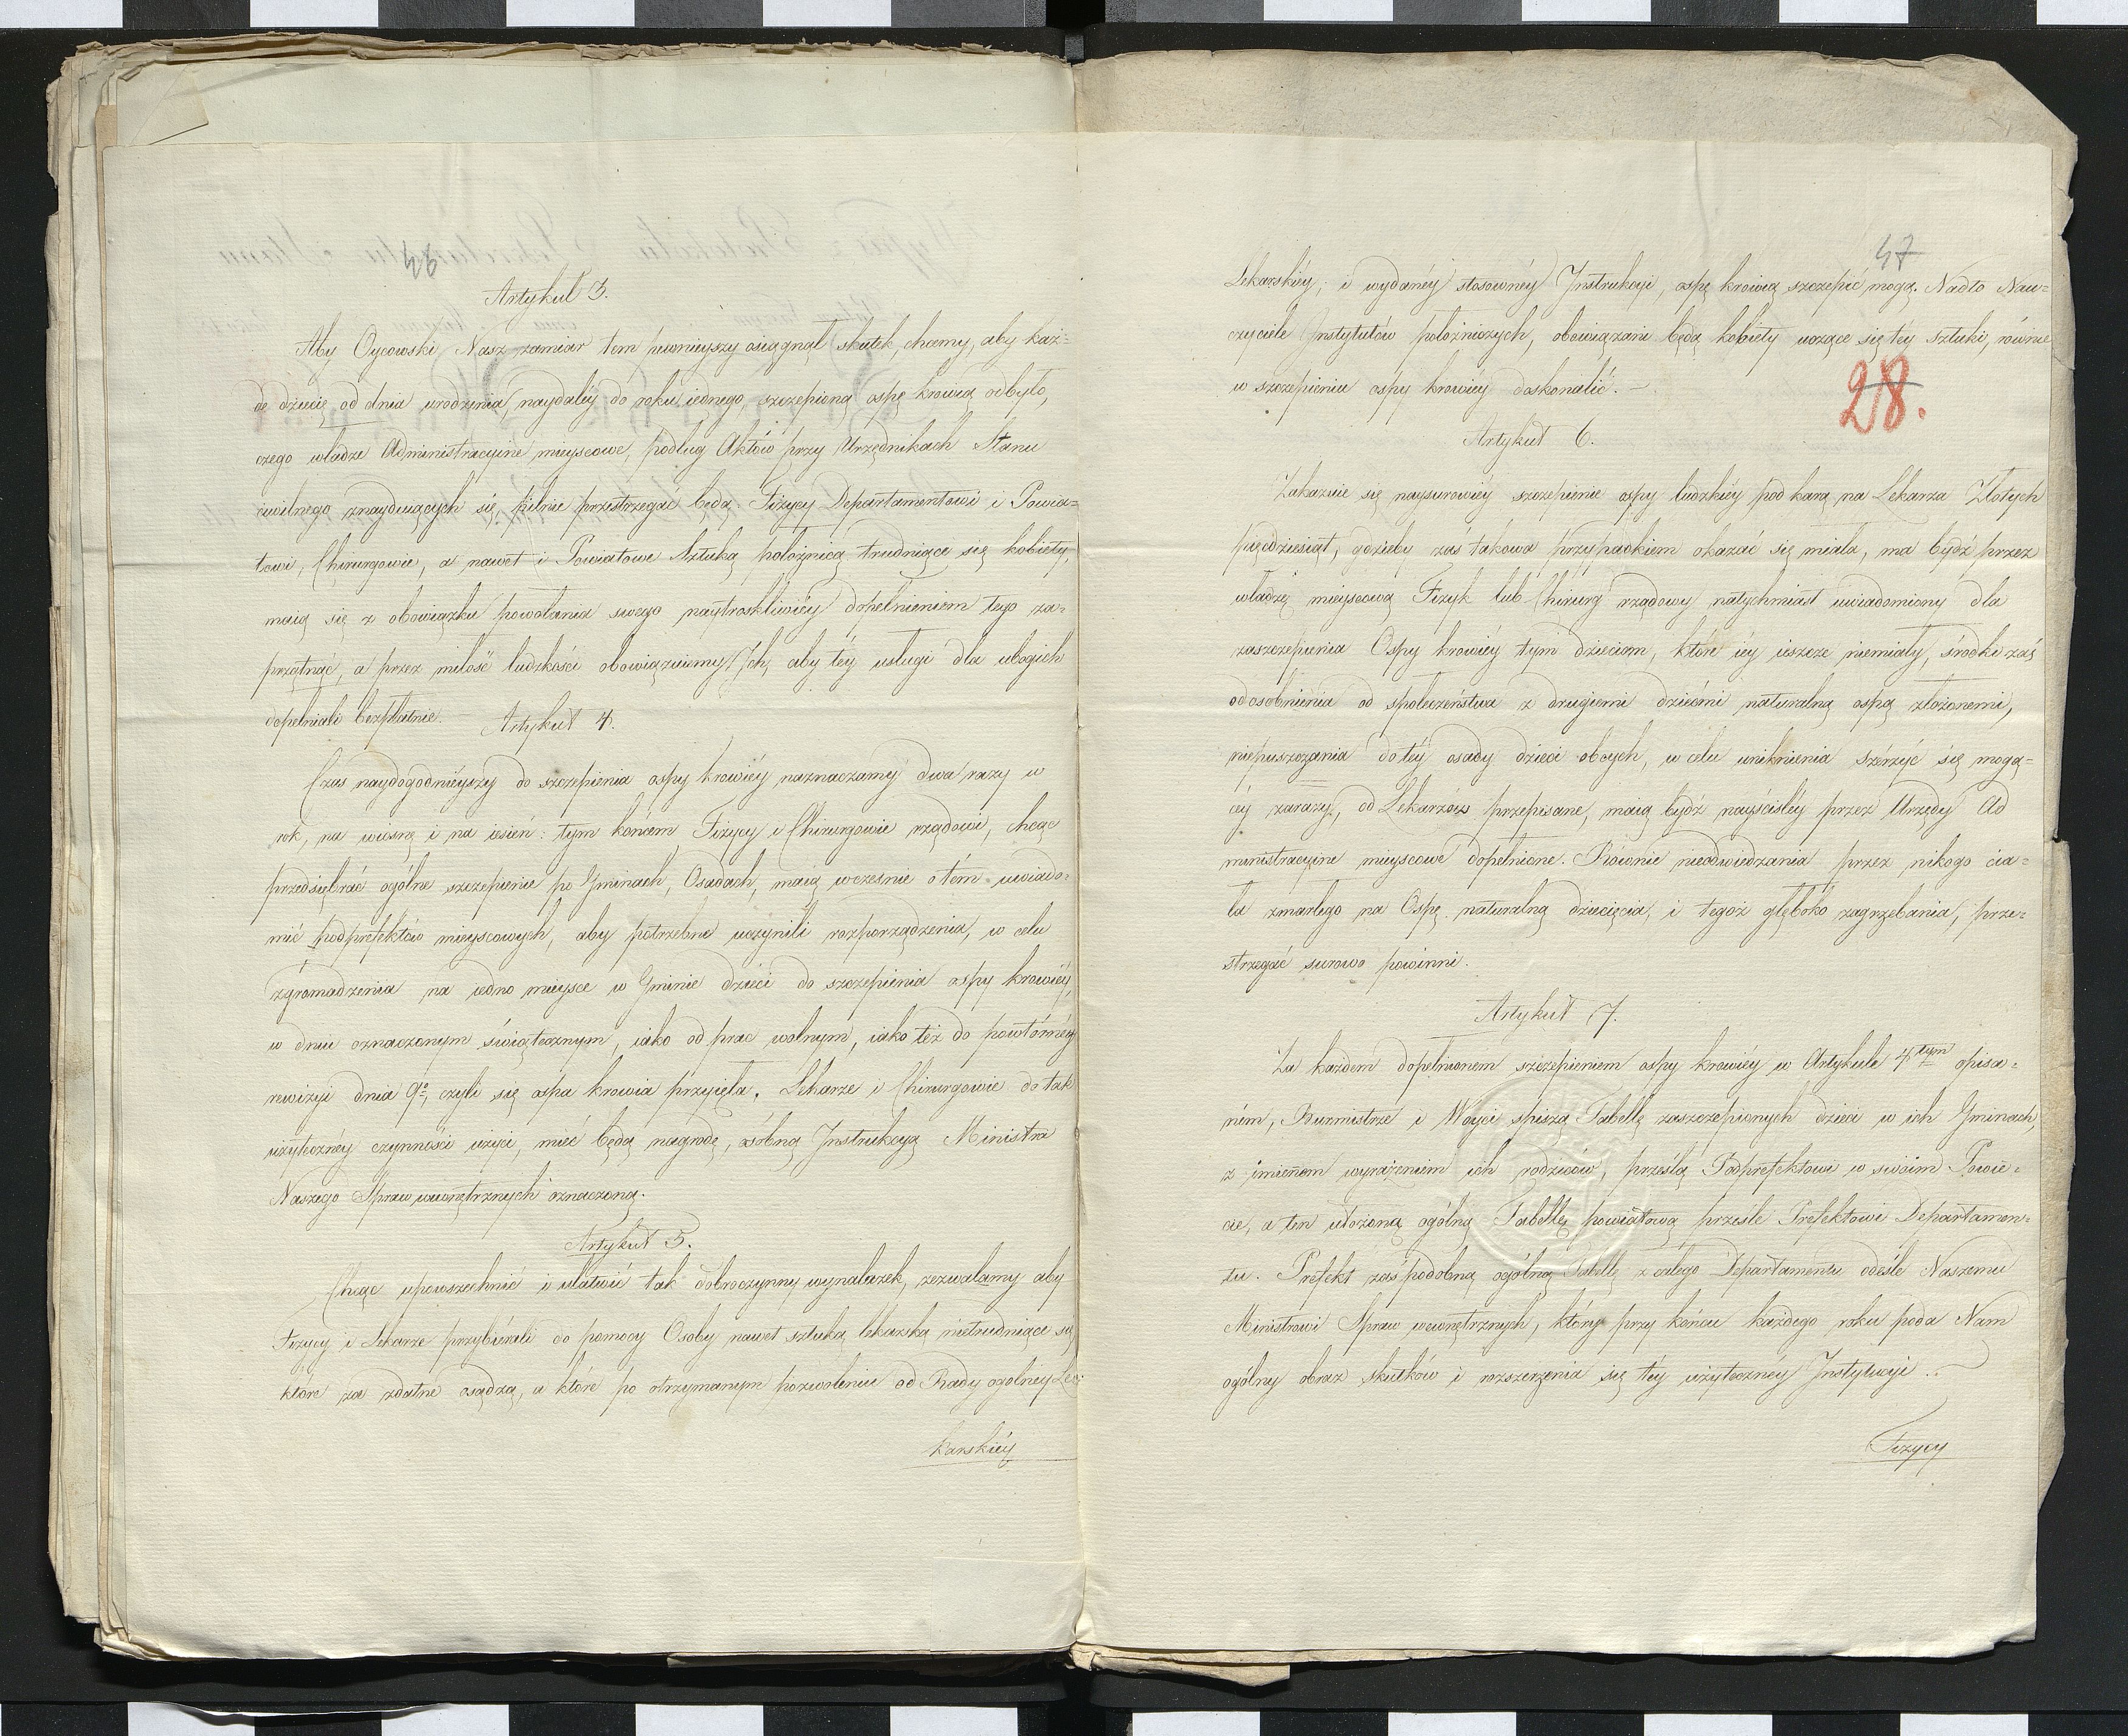 Artykuł 3.
Aby Oycowski Nasz zamiar tem pewnieyszy osiągnął skutek, chcemy, aby każ=
de dziecię od dnia urodzenia, naydaléy do roku iednego, szczepioną ospę krowią odbyło,
czego władze Administracyine mieyscowe, podług Aktów przy Urzędnikach Stanu
cywilnego znayduiących się, pilnie przestrzegać będą. Fizycy Departamentowi i Powia=
towi, Chirurgowie, a nawet i Powiatowe Sztuką położniczą trudniące się kobiety,
maią się z obowiązku powołania swego naytroskliwiéy dopełnieniem tego za=
przątnąć, a przez miłość ludzkości obowiązuiemy Ich, aby téy usługi dla ubogich
dopełniali bezpłatnie.
Artykuł 4.
Czas naydogodnieyszy do szczepienia ospy krowiéy naznaczamy dwa razy w
rok, na wiosnę i na iesień: tym końcem Fizycy i Chirurgowie rządowi, chcąc
przedsiębrać ogólne szczepienie po Gminach, Osadach, maią wcześnie o tém uwiado=
mić podprefektów mieyscowych, aby potrzebne uczynili rozporządzenia, w celu
zgromadzenia na iedno mieysce w Gminie dzieci do szczepienia ospy krowiéy,
w dniu oznaczonym świątecznym, iako od prac wolnym, iako też do powtórnéy
rewizyi dnia 9º, czyli się ospa krowia przyięła. Lekarze i Chirurgowie do tak
użytecznéy czynności użyci, mieć będą nagrodę, osobną Instrukcyą Ministra
Naszego Spraw wewnętrznych oznaczoną.
Artykuł 5.
Chcąc upowszechnić i ułatwić tak dobroczynny wynalazek, zezwalamy aby
Fizycy i Lekarze przybierali do pomocy Osoby nawet sztuką lekarską nietrudniące się
które za zdatne osądzą, a które po otrzymanym pozwoleniu od Rady ogólnéy Le=
karskiéy
47
Lekarskiéy, i wydanéy stosownéy Instrukcyi, ospę krowią szczepić mogą. Nadto Nau=
czyciele Instytutów położniczych, obowiązani będą kobiety uczące się tey sztuki, równie
w szczepieniu ospy krowiéy doskonalić. —
28.
Artykuł 6.
Zakazuie się naysurowiéy szczepienie ospy ludzkiéy pod karą na Lekarza Złotych
pięćdziesiąt, gdzieby zaś takowa przypadkiem okazać się miała, ma bydź przez
władzę mieyscową Fizyk lub Chirurg rządowy natychmiast uwiadomiony dla
zaszczepienia Ospy krowiéy tym dzieciom, które iéy ieszcze niemiały, środki zaś
odosobnienia od społeczeństwa z drugiemi dziećmi naturalną ospą złożonemi,
niepuszczania do téy osady dzieci obcych, w celu uniknienia szérzyć się mogą=
céy zarazy, od Lekarzów przepisane, maią bydź nayściśléy przez Urzędy Ad
ministracyine mieyscowe dopełnione. Równie nieodwiedzania przez nikogo cia=
ła zmarłego na Ospę naturalną dziecięcia, i tegoż głęboko zagrzebania, prze=
strzegać surowo powinni.
Artykuł 7.
Za każdem dopełnionem szczepieniem ospy krowiéy w Artykule 4tym opisa=
ném, Burmistrze i Woyci spiszą Tabellę zaszczepionych dzieci w ich Gminach,
z imiennem wyrażeniem ich rodziców, prześlą Podprefektowi w swoim Powie=
cie, a ten ułożoną ogólną Tabellę powiatową prześle Prefektowi Departamen=
tu. Prefekt zaś podobną ogólną Tabellę z całego Departamentu odeśle Naszemu
Ministrowi Spraw wewnętrznych, który przy końcu każdego roku poda Nam
ogólny obraz skutków i rozszerzenia się téy użytecznéy Instytucyi.
Fizycy